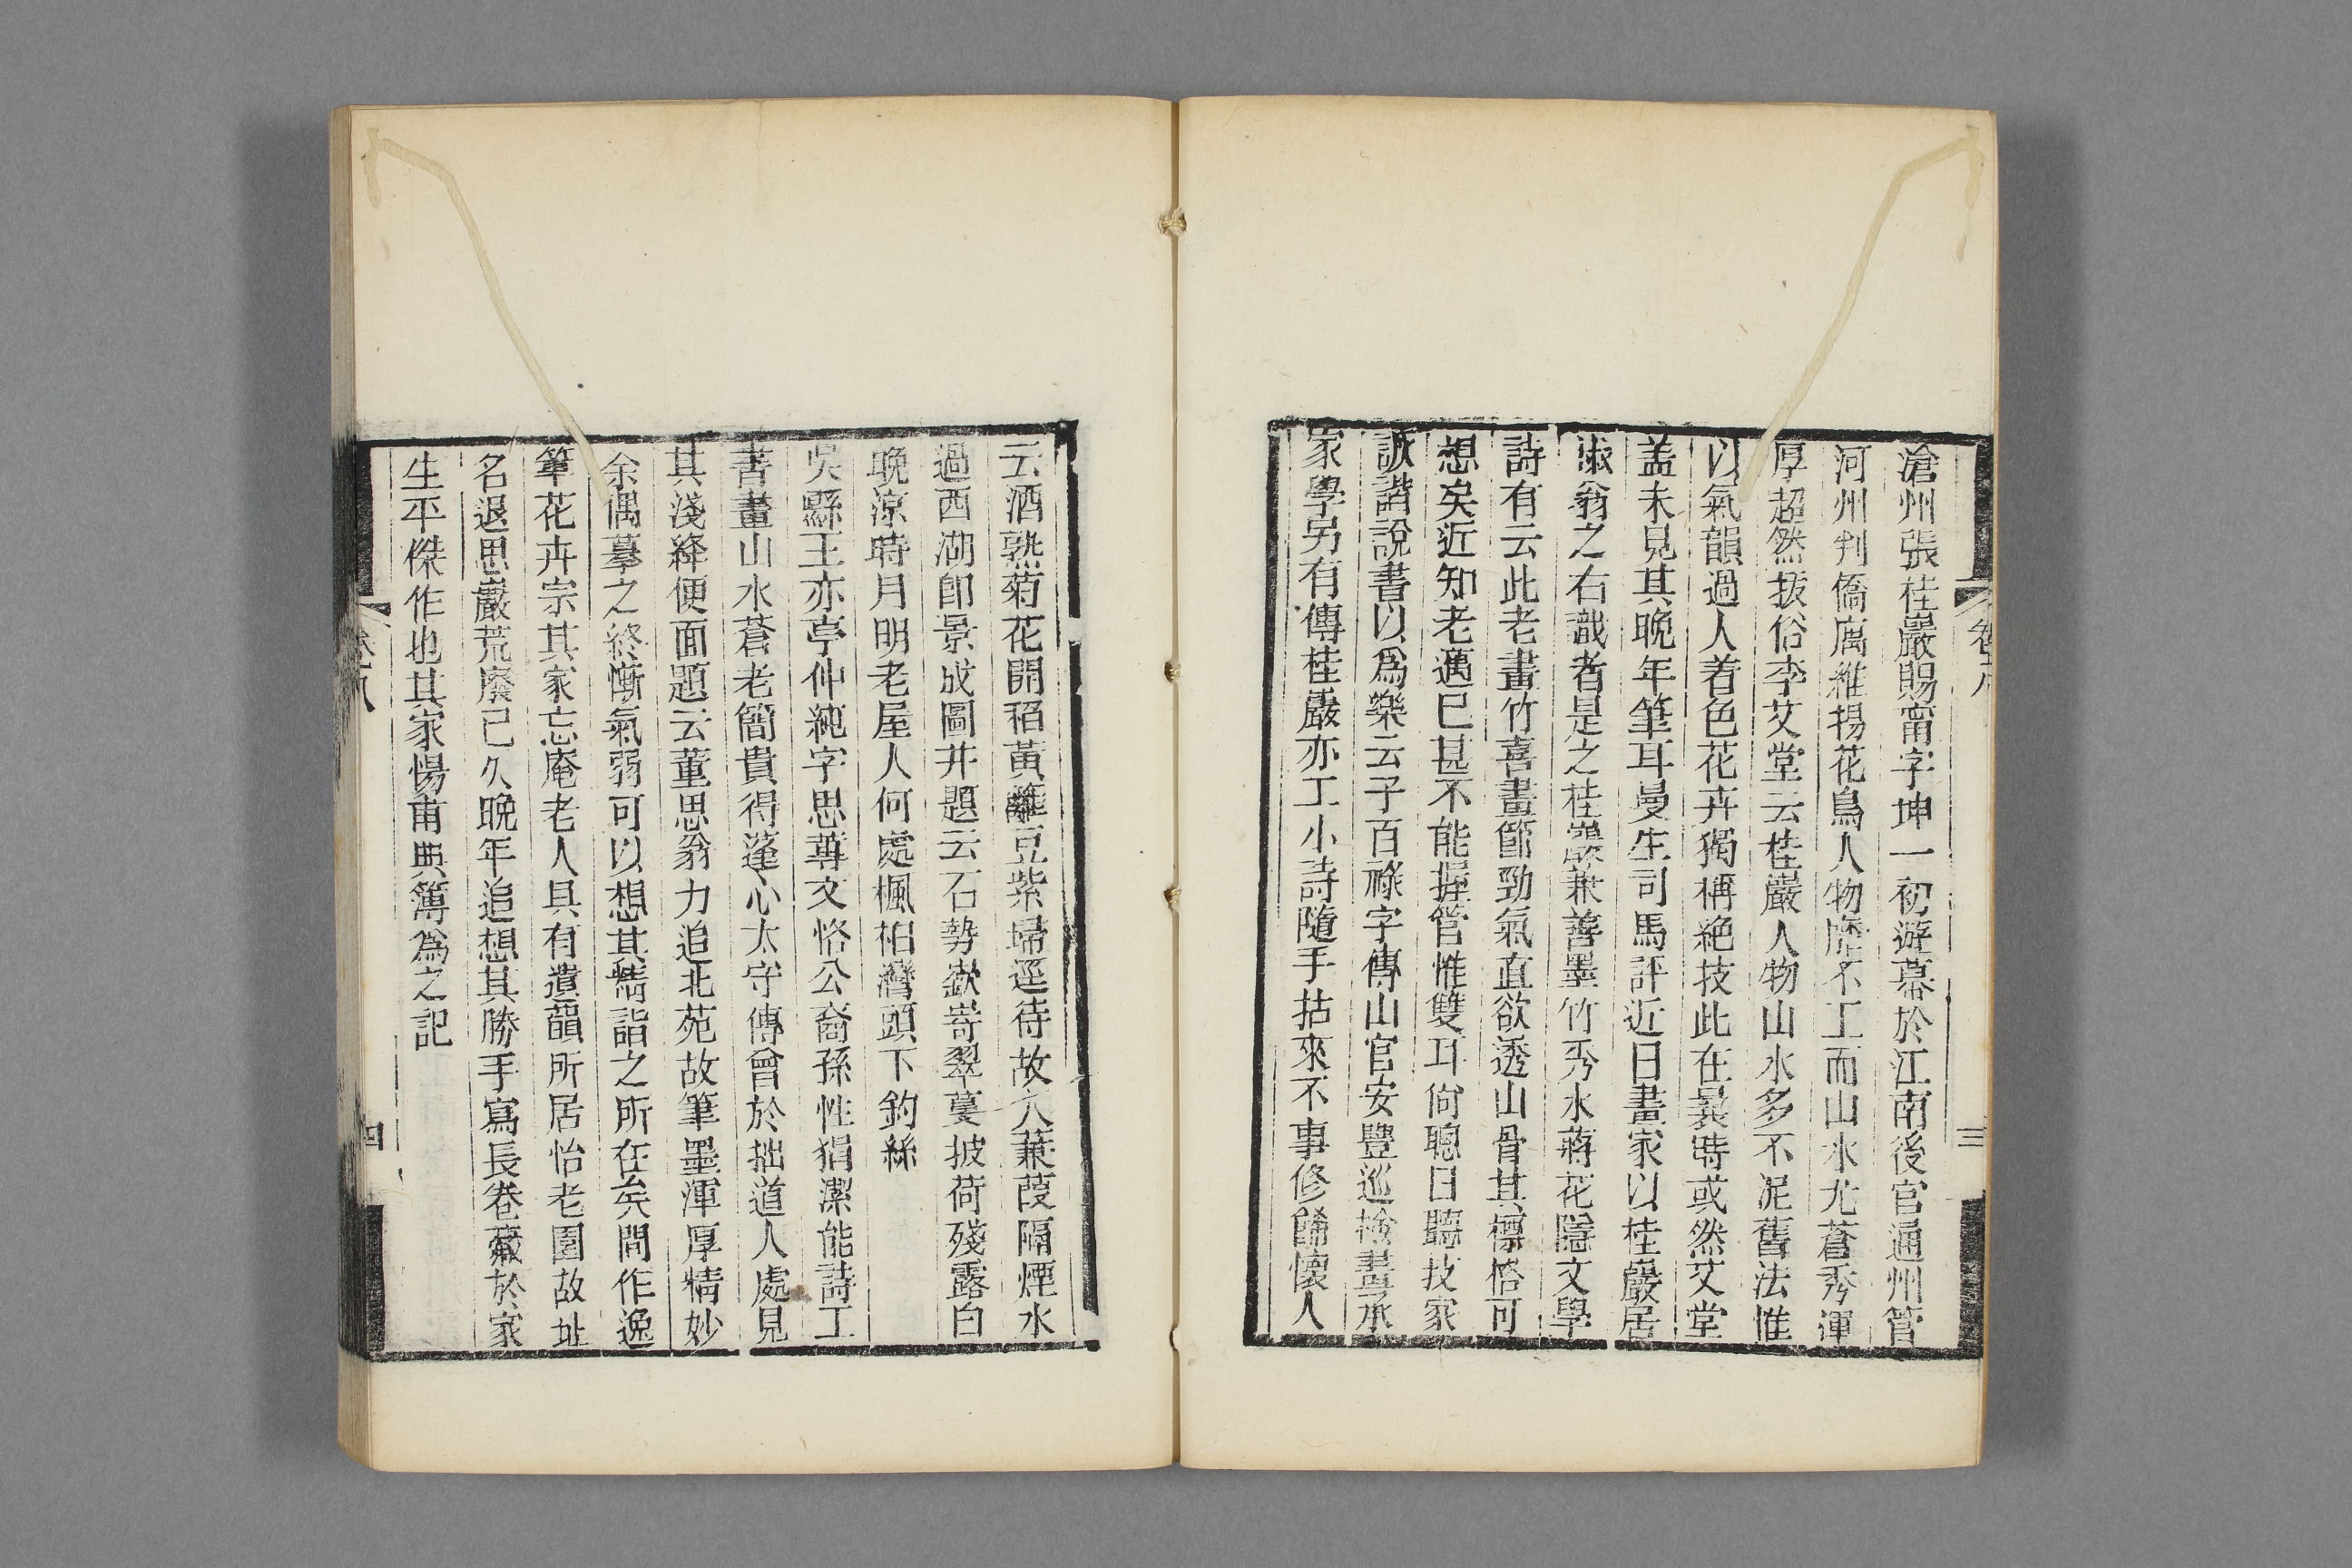 滄州張桂巖賜甯字坤一初遊幕於江南後官通州管
河州判僑寓維揚花鳥人物靡不工而山水尤蒼秀渾
厚超然拔俗李艾堂云桂巖人物山水多不泥舊法惟
以氣韻過人着色花卉獨稱絕技此在曩時或然艾堂
盖未見其晚年筆耳曼生司馬評近日畫家以桂巖居
淑翁之右識者是之桂巖兼善墨竹秀水蔣花隱文學
詩有云此老畫竹喜畫節勁氣直欲透山骨其標格可
想矣近知老邁已甚不能握管惟雙耳尙聰日聽技家
詼諧說書以爲樂云子百祿字傳山官安豐巡檢畫承
家學另有傳桂巖亦工小詩隨手拈來不事修餙懷人
卷六
三
云酒熟菊花開稻黃籬豆紫歸逕待故人蒹葭隔煙水
過西湖即景成圖幷題云石勢嶔嵜翠蔓披荷殘露白
晚凉時月明老屋人何處楓桕灣頭下釣絲
吳縣王亦亭仲純字思蓴文恪公裔孫性狷潔能詩工
書畫山水蒼老簡貴得蓬心太守傳曾於拙道人處見
其淺絳便面題云董思翁力追北苑故筆墨渾厚精妙
余偶摹之終慚氣弱可以想其精詣之所在矣間作逸
筆花卉宗其家忘庵老人具有遺韻所居怡老園故址
名退思巖荒廢已久晚年追想其勝手寫長卷藏於家
生平傑作也其家惕甫典簿爲之記
四